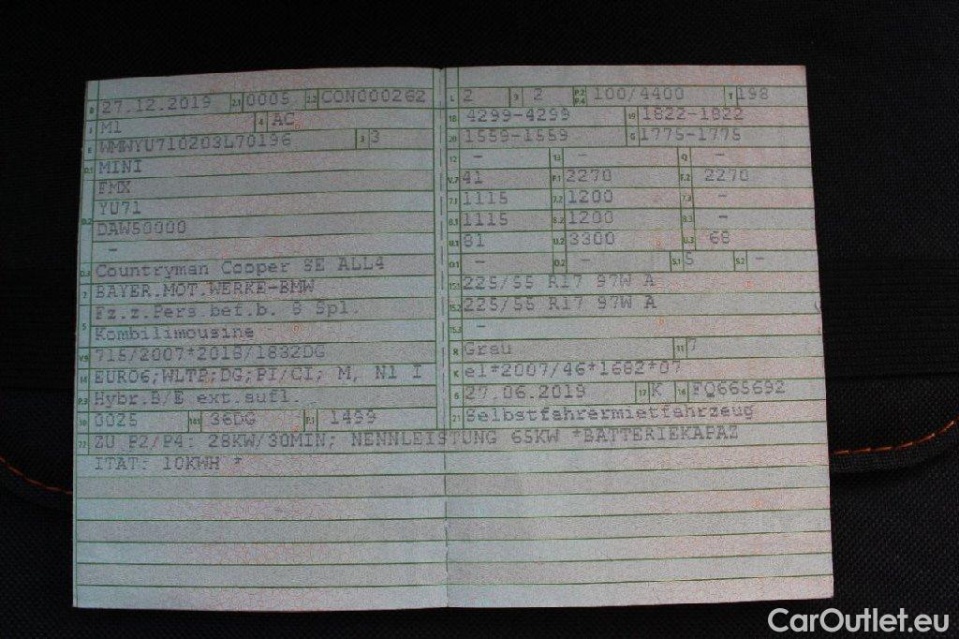 B 27.12.2019 2.1 0005 2.2 CON000262
J M1 4 AC
E WMWYU710203L70196 3 3
D.1 MINI
FMX
D.2 YU71
DAW50000
-
D.3 Countryman Cooper SE ALL4
2 BAYER.MOT.WERKE-BMW
5 Fz.z.Pers.bef.b. 8 Spl.
Kombilimousine
V.9 715/2007*2018/1832DG
14 EURO6;WLTP;DG;PI/CI; M, N1 I
P.3 Hybr.B/E ext.aufl.
10 0025 14.1 36DG P.1 1499
22 ZU P2/P4: 28KW/30MIN; NENNLEISTUNG 65KW *BATTERIEKAPAZ
ITAT: 10KWH *
L 2 9 2 P.2 P.4 100/4400 T 198
18 4299-4299 19 1822-1822
20 1559-1559 G 1775-1775
12 - 13 - Q -
V.7 41 F.1 2270 F.2 2270
7.1 1115 7.2 1200 7.3 -
8.1 1115 8.2 1200 8.3 -
U.1 81 U.2 3300 U.3 68
O.1 - O.2 - S.1 5 S.2 -
15.1 225/55 R17 97W A
15.2 225/55 R17 97W A
15.3 -
R Grau 11 7
K e1*2007/46*1682*07
6 27.06.2019 17 K 16 FQ665692
21 Selbstfahrermietfahrzeug
CarOutlet.eu